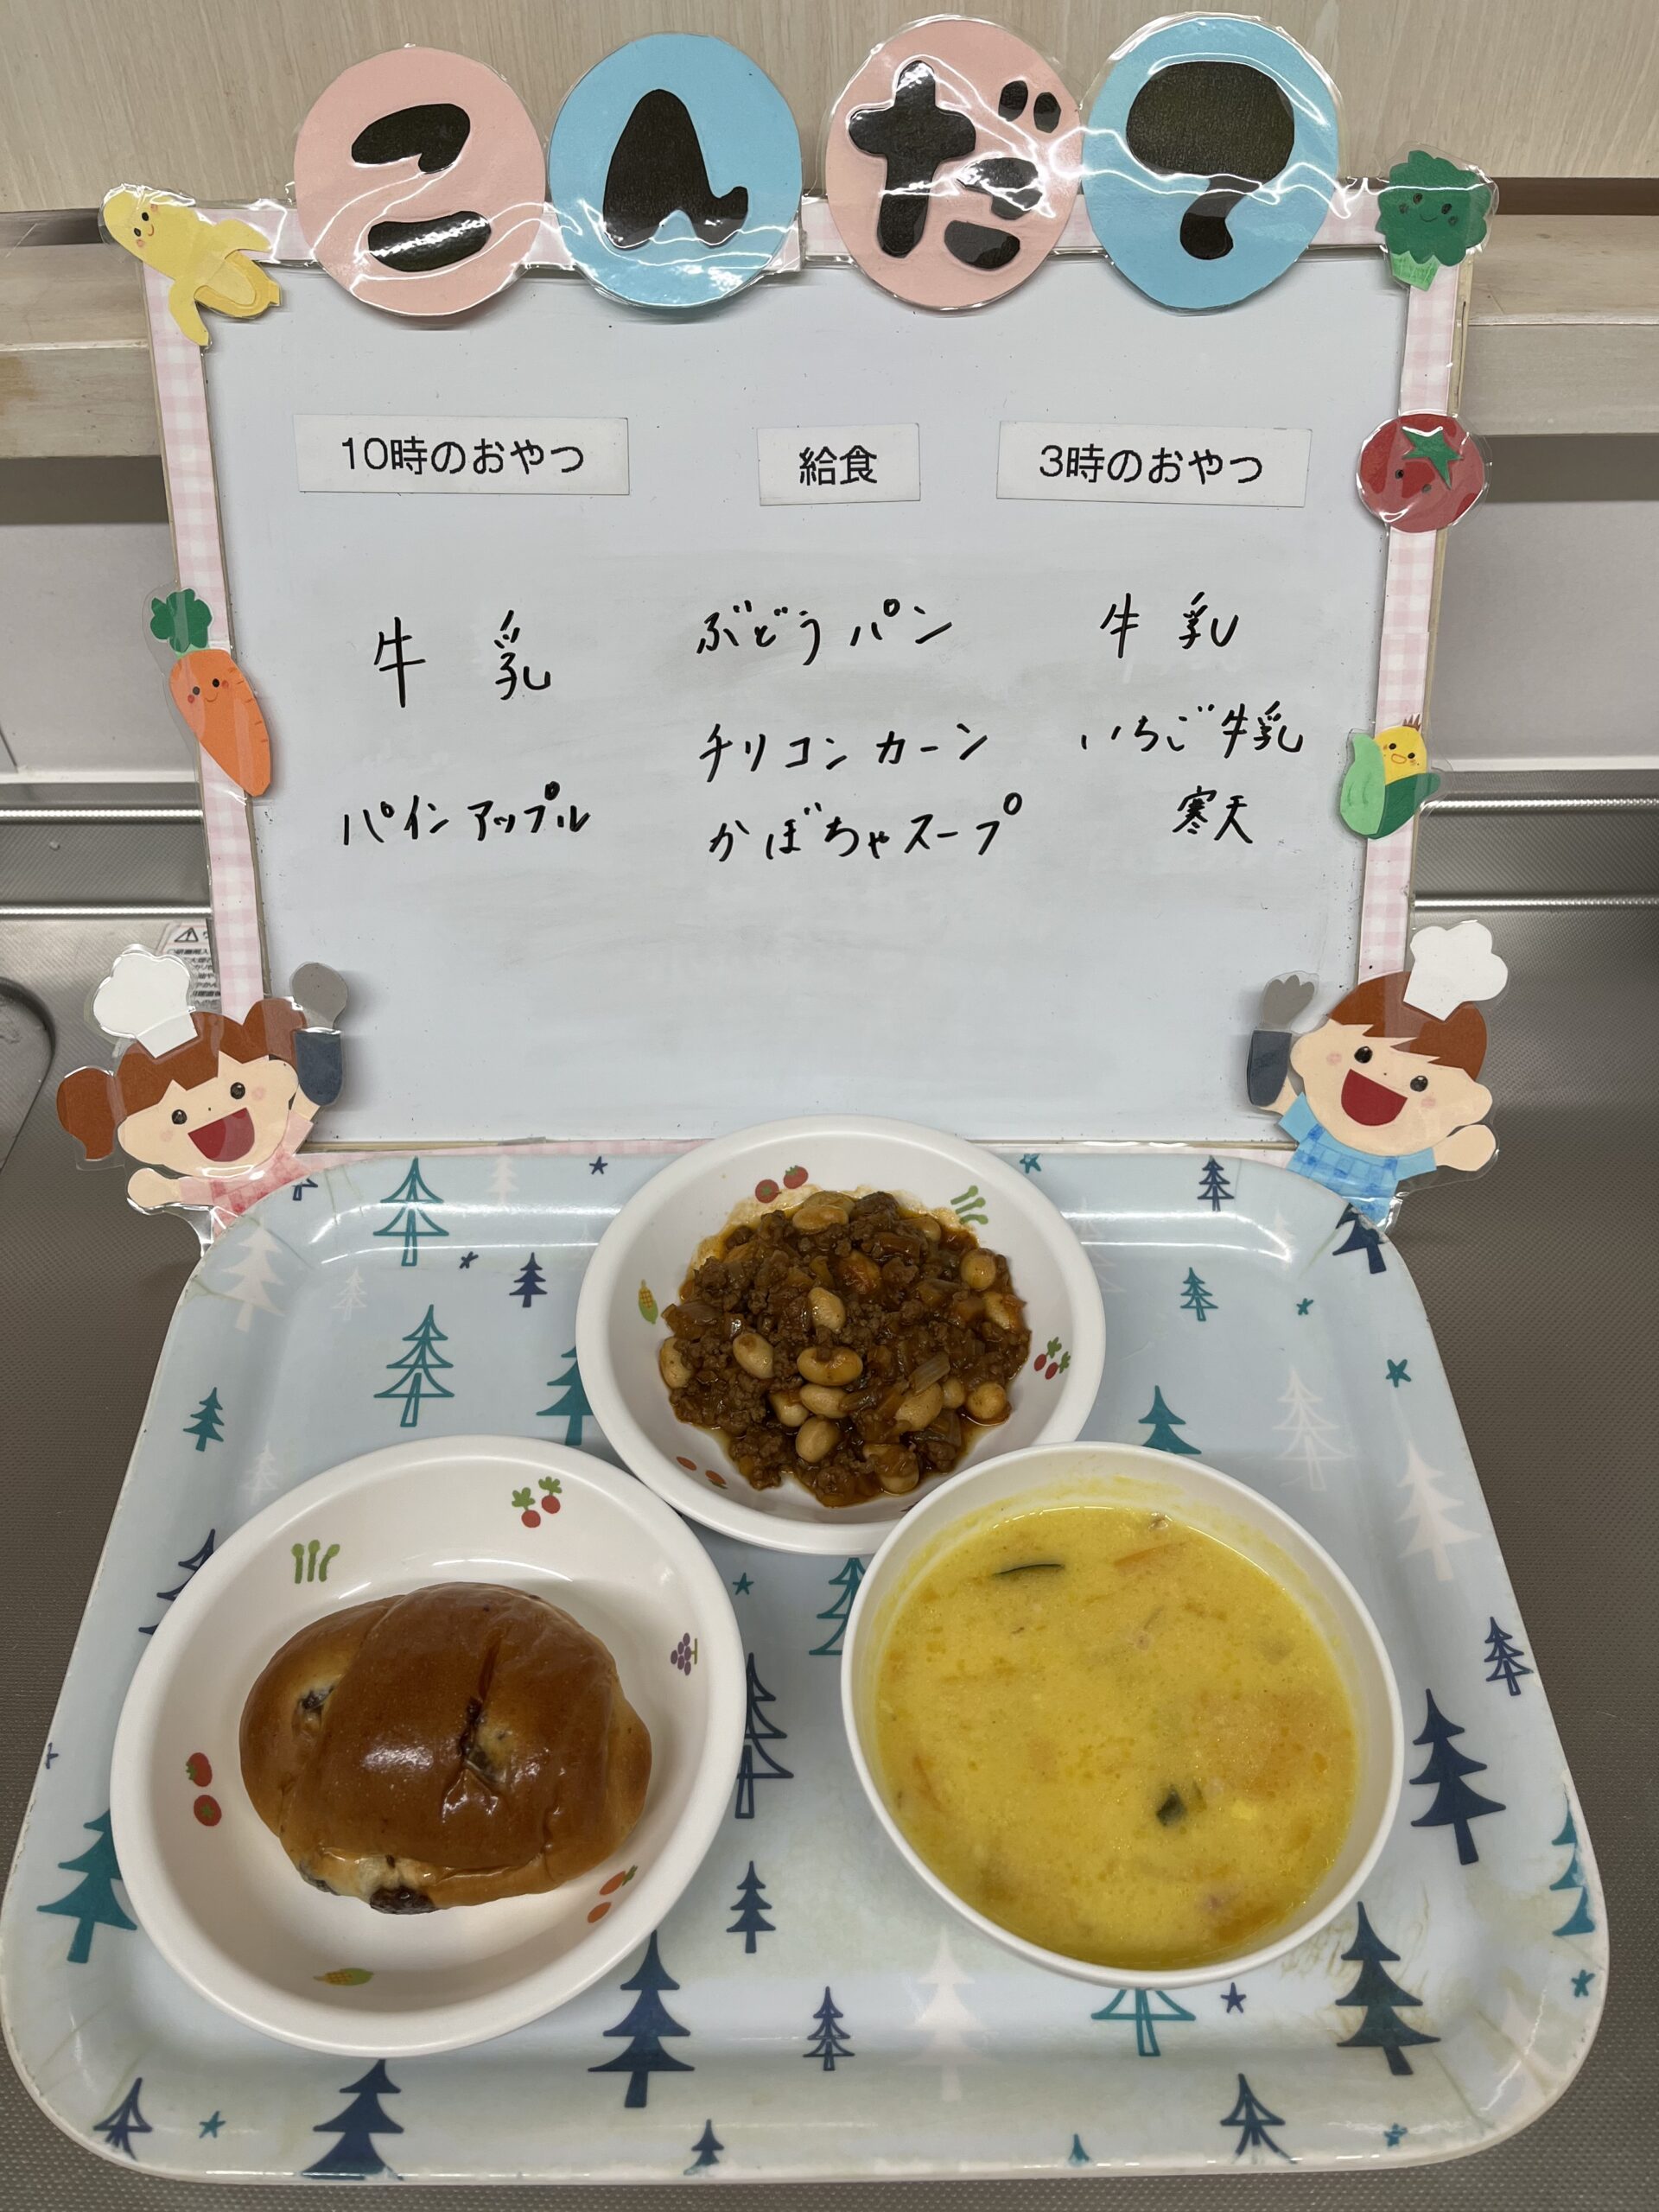 こんだて
10時のおやつ
給食
3時のおやつ
牛乳
パインアップル
ぶどうパン
チリコンカーン
かぼちゃスープ
牛乳
いちご牛乳
寒天